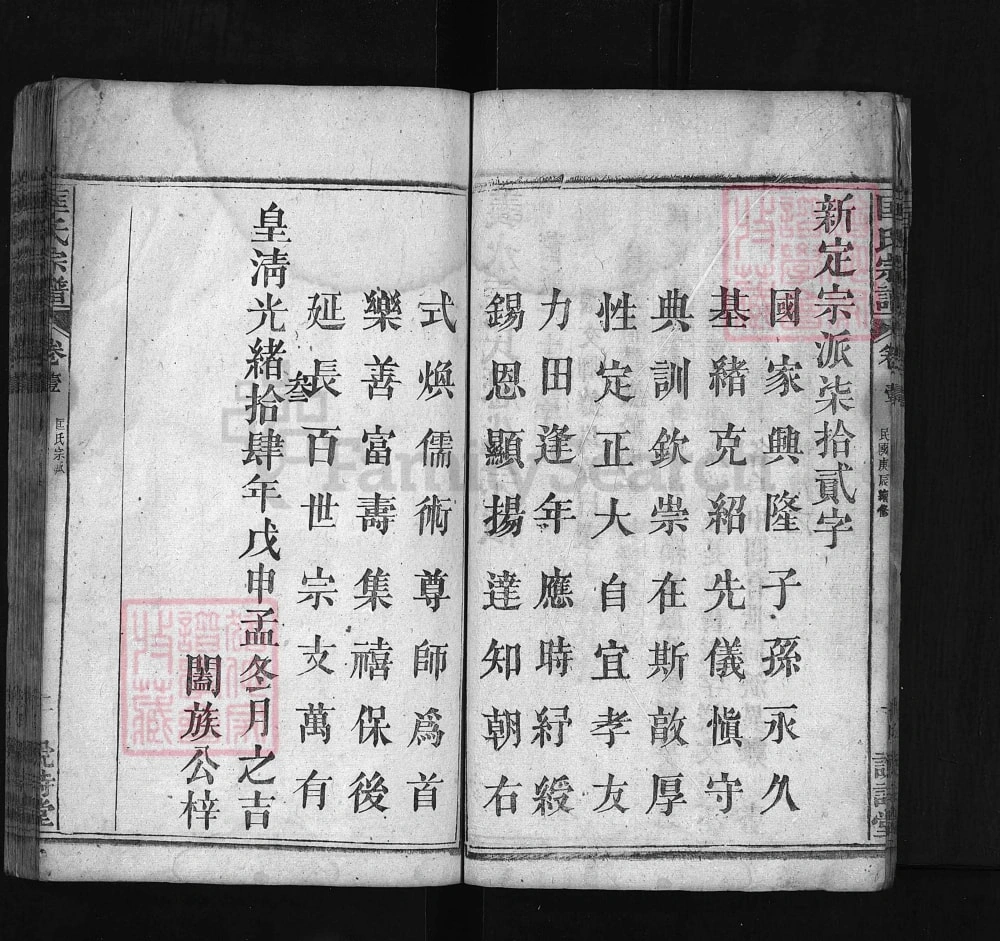 匡氏宗譜 卷壹 民國庚辰續修 說詩堂
新定宗派柒拾貳字
國家興隆子孫永久
基緒克紹先儀愼守
典訓欽崇在斯敦厚
性定正大自宜孝友
力田逢年應時紆綬
錫恩顯揚達知朝右
式煥儒術尊師爲首
樂善富壽集禧保後
延長百世宗支萬有
皇清光緒叁拾肆年戊申孟冬月之吉
闔族公梓
匡氏宗譜 卷壹 匡氏宗派 一 說詩堂
FamilySearch